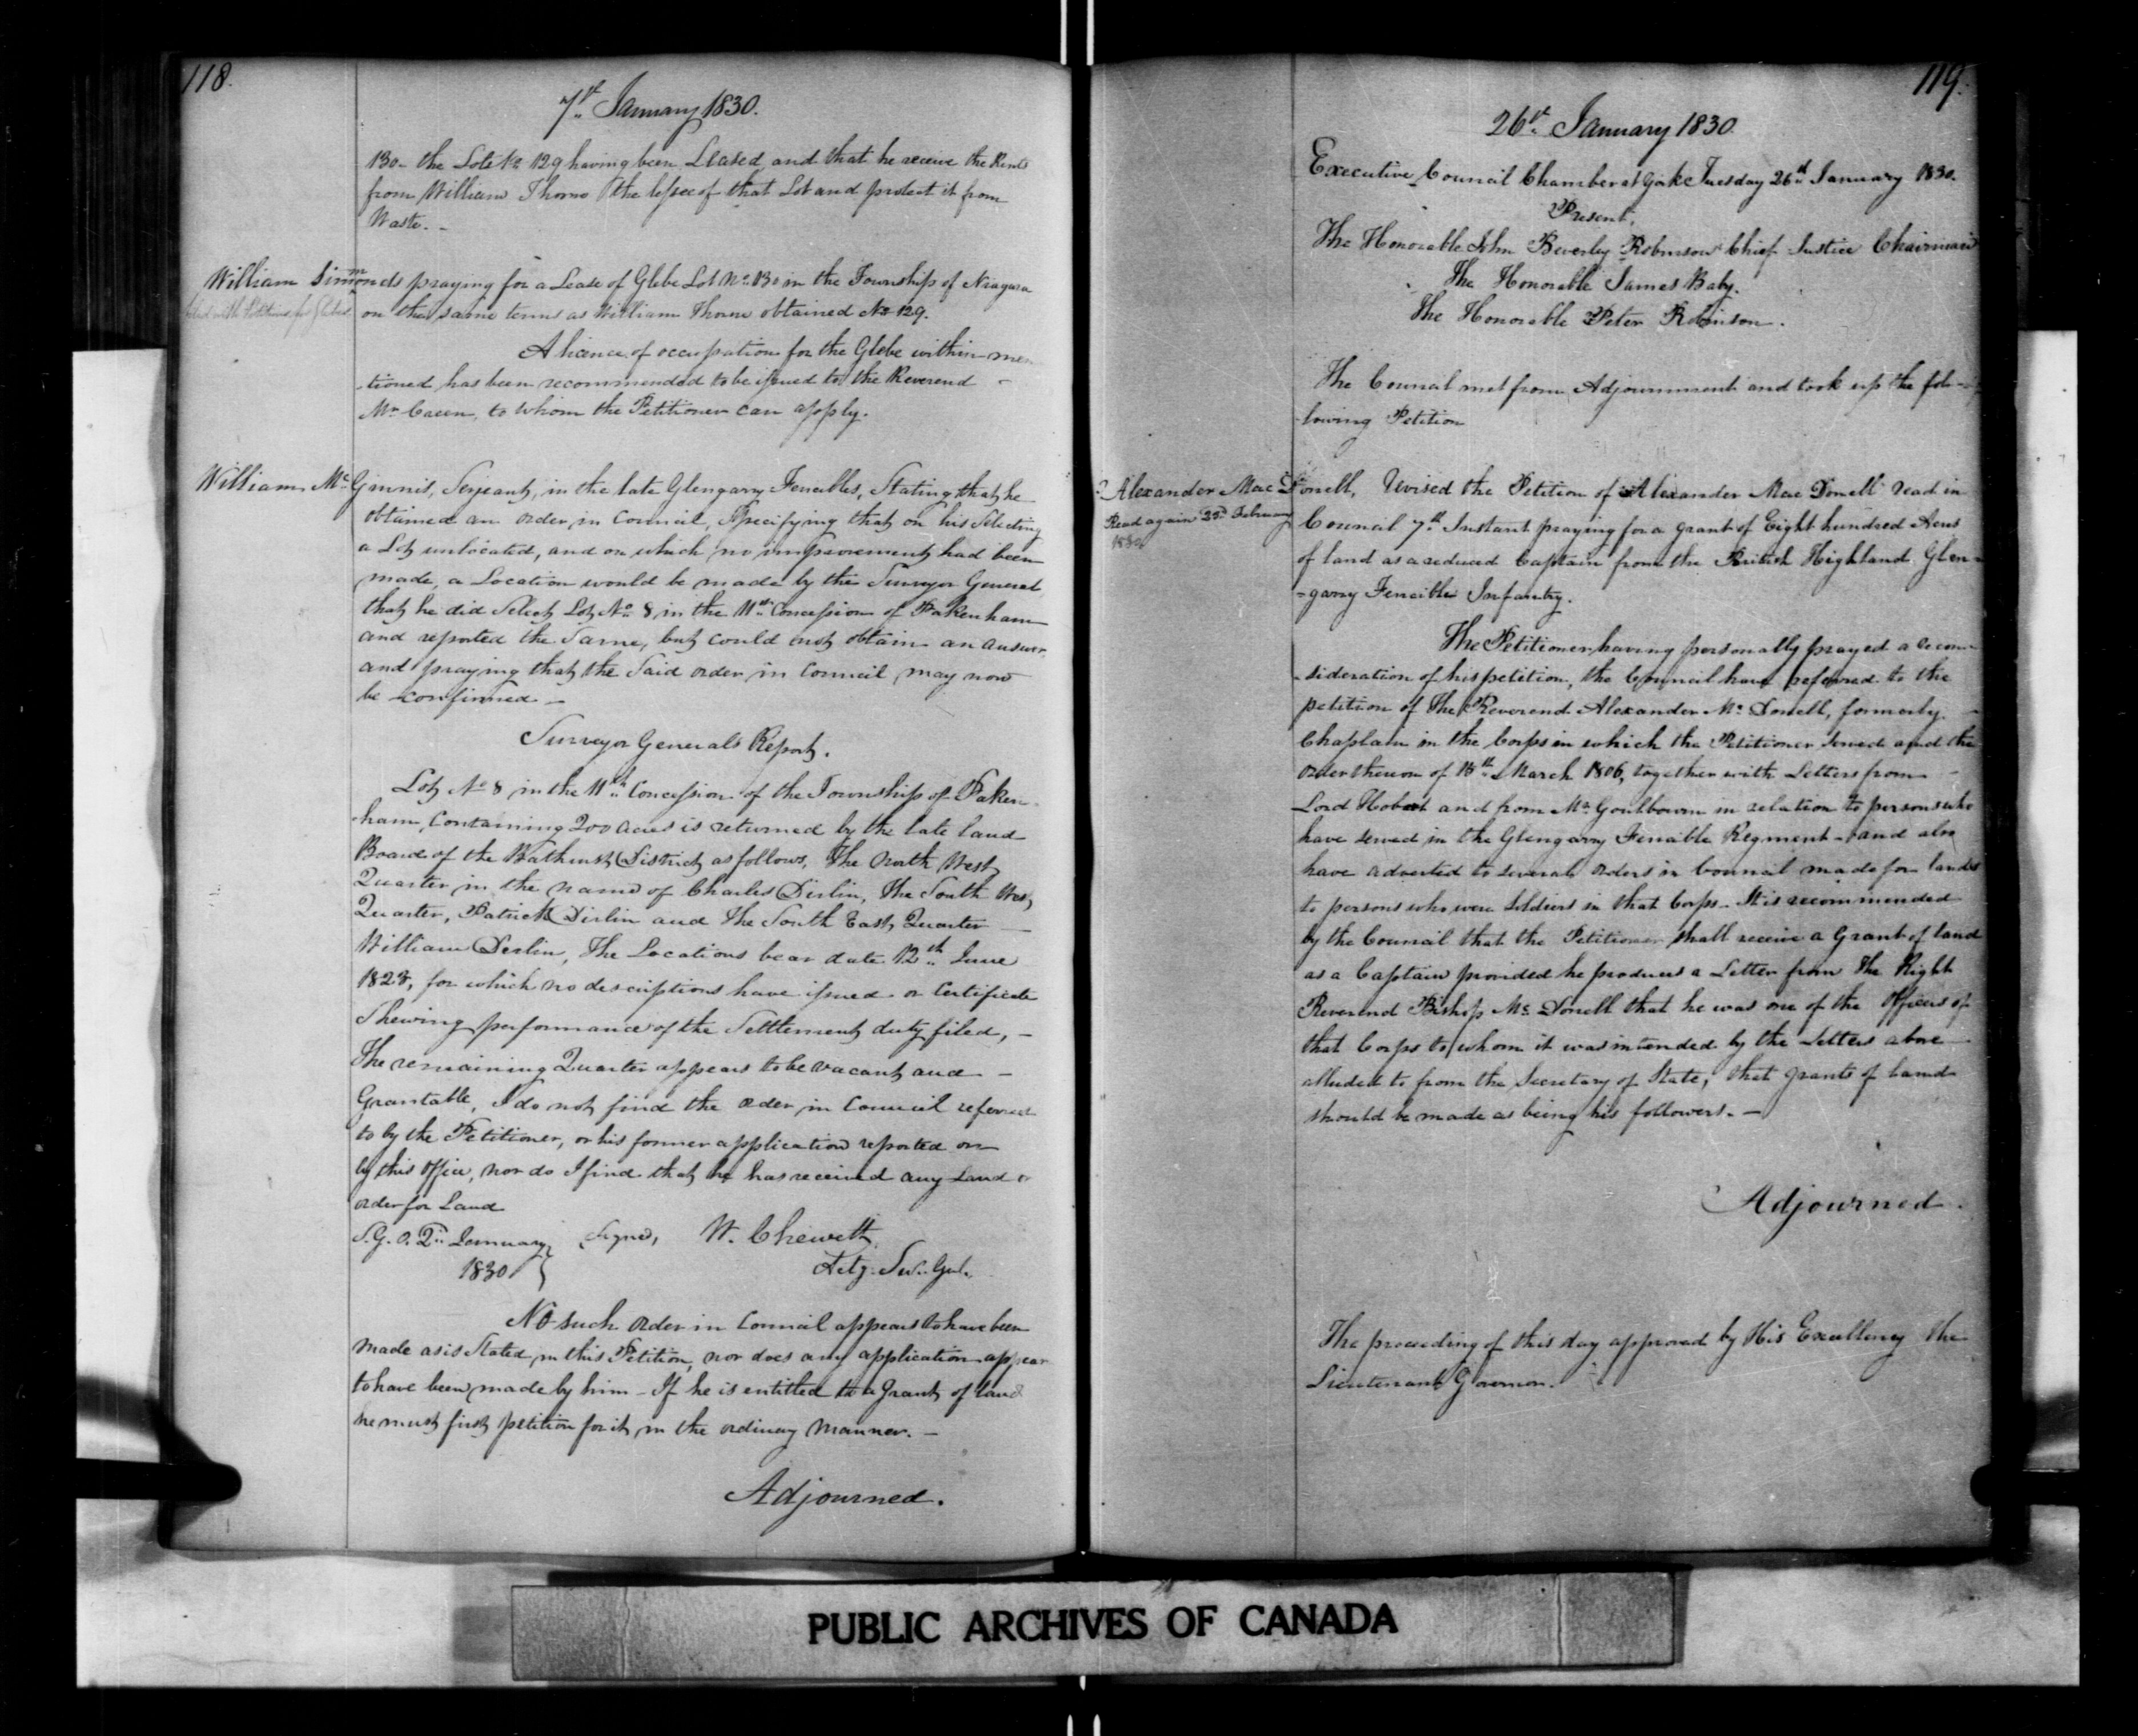 118.
7th January 1830.
130 - the Lots No 129 having been Leased and that he receive the Rents
from William Thorne the lessee of that Lot and protect it from
Waste. -
William Simmonds praying for a Lease of Glebe Lot No. 130 in the Township of Niagara
filed with Petitions for Glebes
on the same terms as William Thorne obtained No 129.
A licence of occupation for the Glebe within men
tioned has been recommended to be issued to the Reverend -
Mr. Creen, to whom the Petitioner can apply.
William McGinnis, Serjeant, in the late Glengary Fencibles, Stating that he
obtained an order in Council, Specifying that on his Selecting
a Lot unlocated, and on which no improvement had been
made, a Location would be made by the Surveyor General
that he did Select Lot No. 8 in the 11th Concession of Pakenham
and reported the Same, but could not obtain an answer,
and praying that the Said order in Council may now
be confirmed -
Surveyor Generals Report.
Lot No 8 in the 11th Concession of the Township of Paken-
ham, Containing 200 acres is returned by the late land
Board of the Bathurst District as follows, The North West
Quarter in the name of Charles Dirlin, The South West
Quarter, Patrick Dirlin and the South East Quarter
William Derlin, The Locations bear date 12th June
1823, for which no descriptions have issued or Certificate
Shewing performance of the Settlement duty filed, -
The remaining Quarter appears to be vacant and -
Grantable, I do not find the order in Council referred
to by the Petitioner, or his former application reported on
by this Office, nor do I find that he has received any Land or
order for Land
S. G. O. 2nd January } Signed, W. Chewett,
1830 } Actg. Sur. Genl.
No such order in Council appears to have been
made as is Stated in this Petition, nor does any application appear
to have been made by him - If he is entitled to a Grant of land
he must first petition for it in the ordinary manner. -
Adjourned.
119.
26th January 1830.
Executive Council Chamber at York Tuesday 26th January 1830.
Present,
The Honorable John Beverley Robinson Chief Justice Chairman
The Honorable James Baby.
The Honorable Peter Robinson.
The Council met from Adjournment and took up the fol-
-lowing Petition
Alexander Mac Donell, Revised the Petition of Alexander Mac Donell read in
Read again 23rd February
1830
Council 7th Instant praying for a grant of Eight hundred Acres
of land as a reduced Captain from the British Highland Glen-
-garry Fencible Infantry.
The Petitioner having personally prayed a recon-
-sideration of his petition, the Council have referred to the
petition of The Reverend Alexander Mc Donell, formerly
Chaplain in the Corps in which the Petitioner served and the
order thereon of 15th March 1806, together with Letters from
Lord Hobart and from Mr. Goulbourn in relation to persons who
have served in the Glengarry Fencible Regiment - and also
have adverted to several orders in Council made for lands
to persons who were Soldiers in that Corps - It is recommended
by the Council that the Petitioner shall receive a Grant of land
as a Captain provided he produces a Letter from The Right
Reverend Bishop Mc Donell that he was one of the Officers of
that Corps to whom it was intended by the Letters above
alluded to from the Secretary of State, that grants of land
should be made as being his followers. -
Adjourned.
The proceeding of this day approved by His Excellency the
Lieutenant Governor.
PUBLIC ARCHIVES OF CANADA